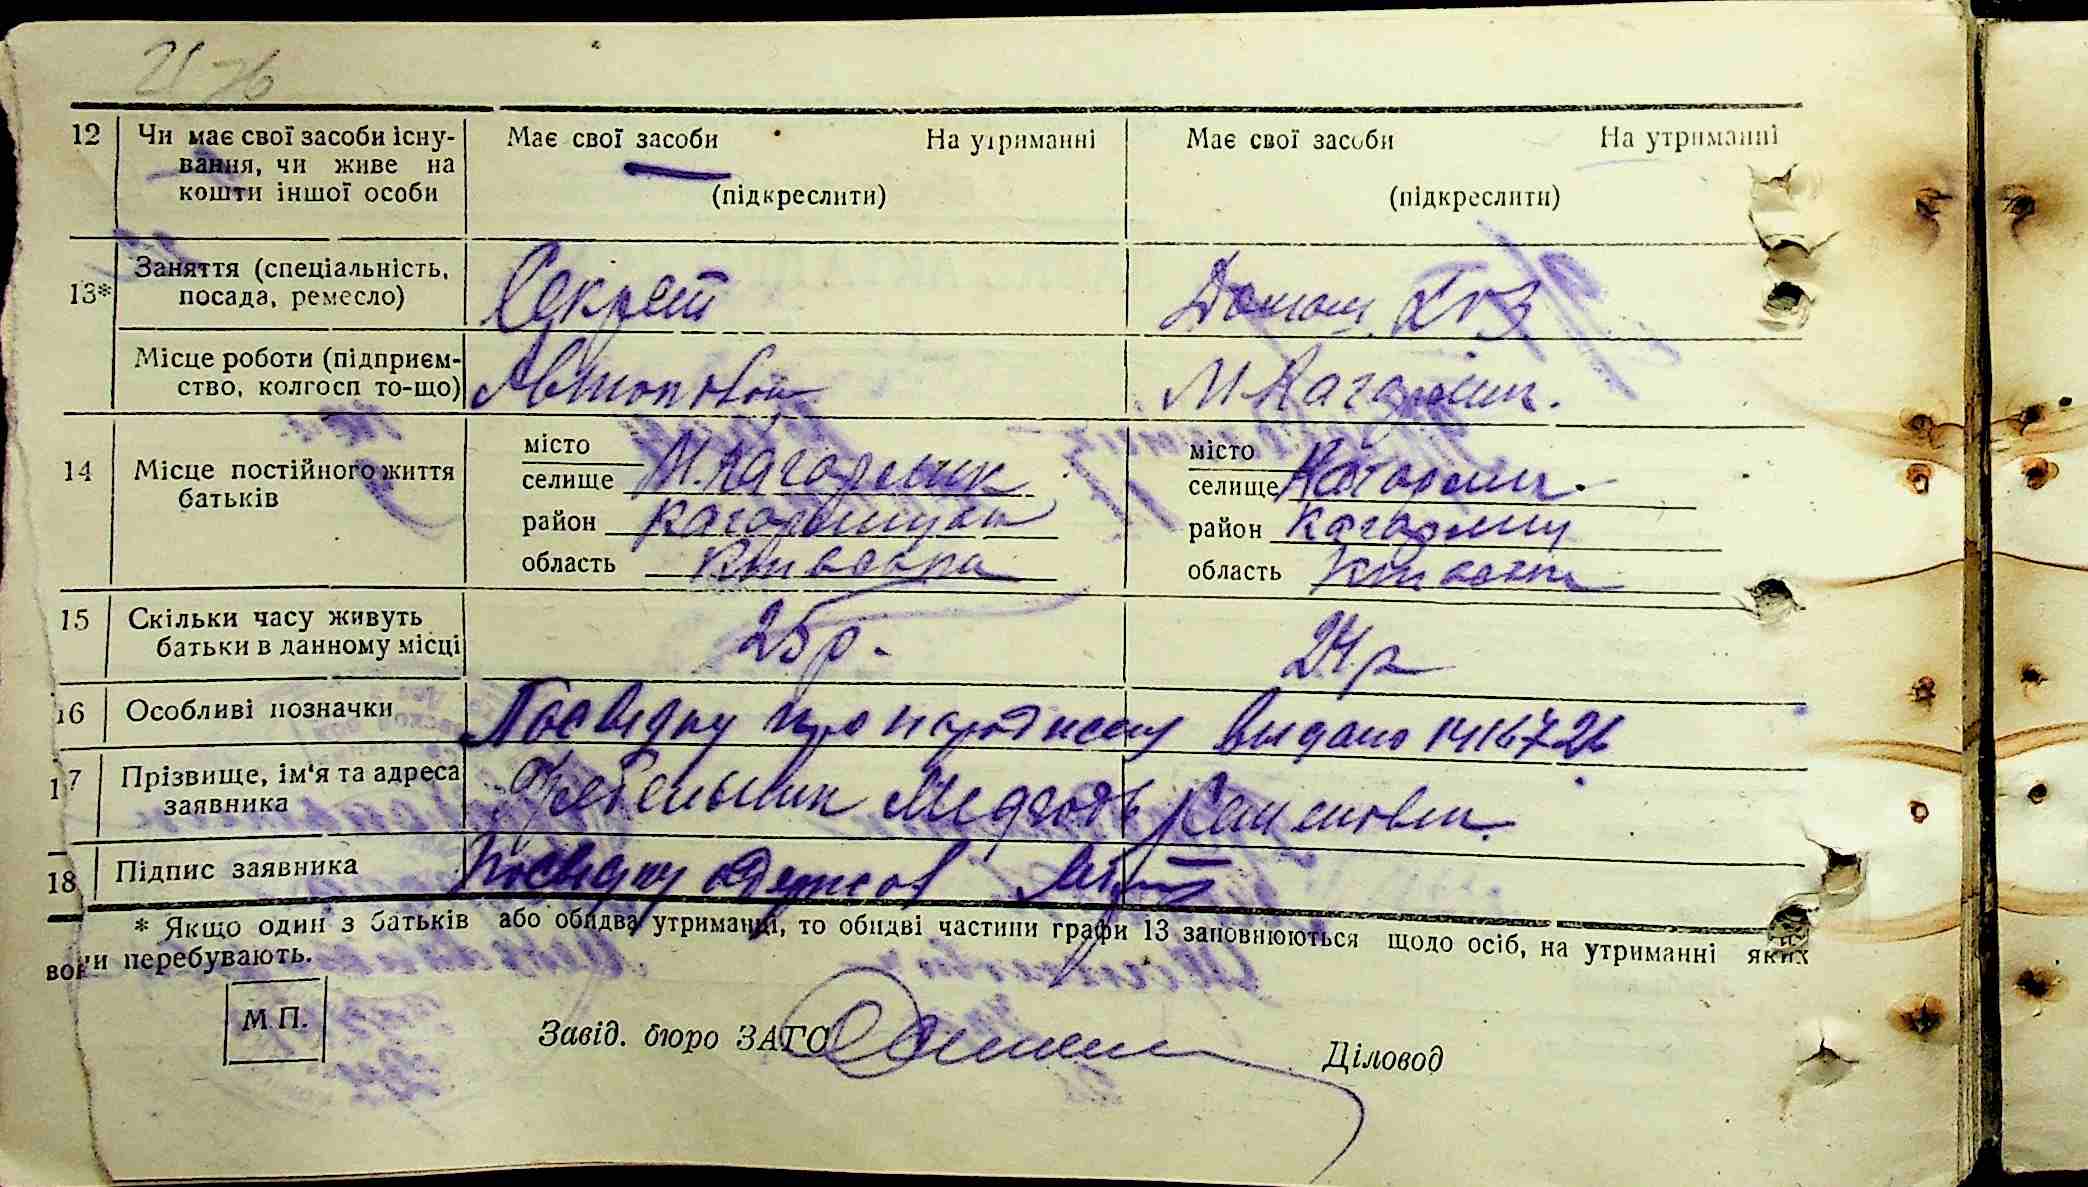 2176
12 Чи має свої засоби існу-
вання, чи живе на
кошти іншої особи
Має свої засоби На утриманні
(підкреслити)
Має свої засоби На утриманні
(підкреслити)
13* Заняття (спеціальність,
посада, ремесло)
Секрет
Домаш.
Місце роботи (підприєм-
ство, колгосп то-що)
М Кагарлик.
14 Місце постійного життя
батьків
місто
селище М. Кагарлик
район Кагарлицьк
область Київська
місто
селище Кагарлик.
район Кагарлиц
область Київськ
15 Скільки часу живуть
батьки в данному місці
25 р.
24 р
16 Особливі позначки
Посвідку про народження видано 1416726
17 Прізвище, ім'я та адреса
заявника
18 Підпис заявника
Посвідку одержав
* Якщо один з батьків або обидва утриманні, то обидві частини графи 13 заповнюються щодо осіб, на утриманні яких
вони перебувають.
М П.
Завід. бюро ЗАГС
Діловод